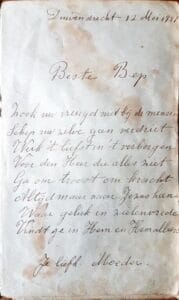 Duivendrecht 12 Mei 1921
Beste Bep
Zoek uw vreugd niet bij de mensen
Schep uw zelve geen verdriet
Werk 't liefst in 't verborgen
Voor den Heer die alles ziet
Ga om troost om kracht
Altijd maar naar Jezus heen
Waar geluk en zielenvrede
Vindt ge in Hem en Hem alleen
Je liefh. Moeder.